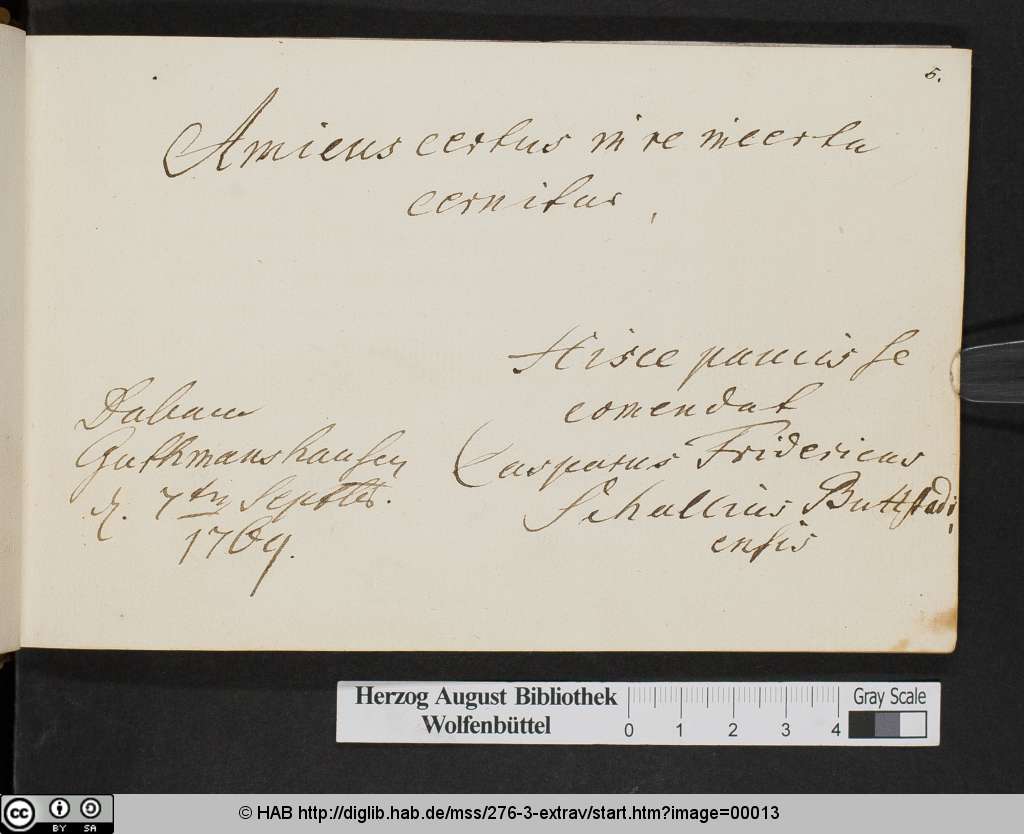 5.
Amicus certus in re incerta
cernitur,
Hisce paucis se
comendat
Casparus Fridericus
Schallius Buttstadi,
ensis
Dabam
Guthmanshausen
d. 7ten Septbr.
1769.
Herzog August Bibliothek
Wolfenbüttel
0 1 2 3 4
Gray Scale
cc BY SA
© HAB http://diglib.hab.de/mss/276-3-extrav/start.htm?image=00013